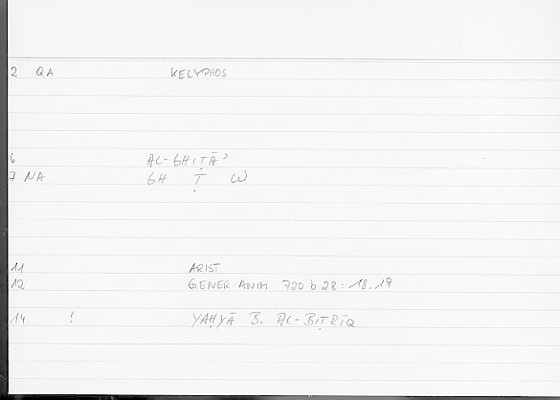 2 QA KELYPHOS
6 AL-GHIṬĀʾ
7 NA GH Ṭ W
11 ARIST
12 GENER ANIM 720 b 28 : 18.19
14 ! YAḤYĀ B. AL-BIṬRĪQ